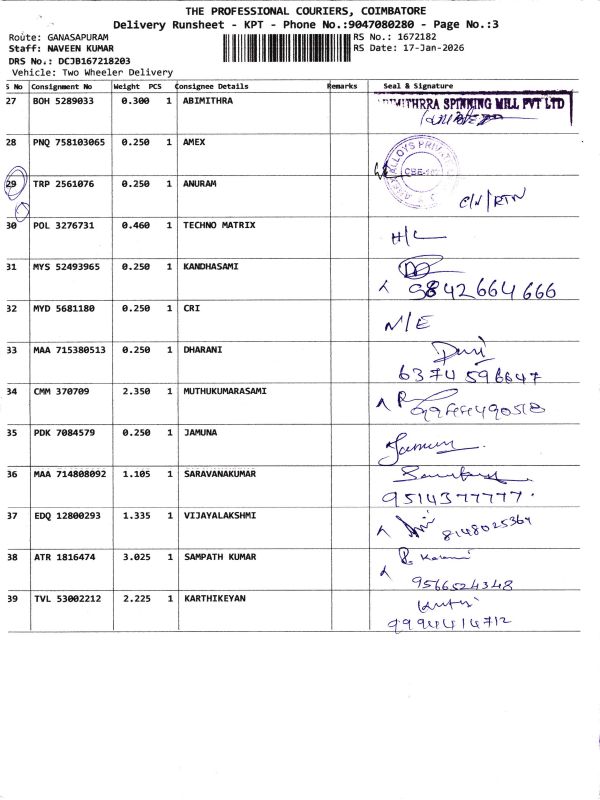 THE PROFESSIONAL COURIERS, COIMBATORE
Delivery Runsheet - KPT - Phone No.:9047080280 - Page No.:3
Route: GANASAPURAM RS No.: 1672182
Staff: NAVEEN KUMAR RS Date: 17-Jan-2026
DRS No.: DCJB167218203
Vehicle: Two Wheeler Delivery
S No Consignment No Weight PCS Consignee Details Remarks Seal & Signature
27 BOH 5289033 0.300 1 ABIMITHRA ABIMITHRRA SPINNING MILL PVT LTD
28 PNQ 758103065 0.250 1 AMEX ALLOYS PRIV
29 TRP 2561076 0.250 1 ANURAM C/N/RTN
30 POL 3276731 0.460 1 TECHNO MATRIX H/L
31 MYS 52493965 0.250 1 KANDHASAMI 9842664666
32 MYD 5681180 0.250 1 CRI N/E
33 MAA 715380513 0.250 1 DHARANI
6374596647
34 CMM 370709 2.350 1 MUTHUKUMARASAMI
35 PDK 7084579 0.250 1 JAMUNA Jamuna
36 MAA 714808092 1.105 1 SARAVANAKUMAR
9514377777
37 EDQ 12800293 1.335 1 VIJAYALAKSHMI 8148025364
38 ATR 1816474 3.025 1 SAMPATH KUMAR
9566524348
39 TVL 53002212 2.225 1 KARTHIKEYAN
9994414712